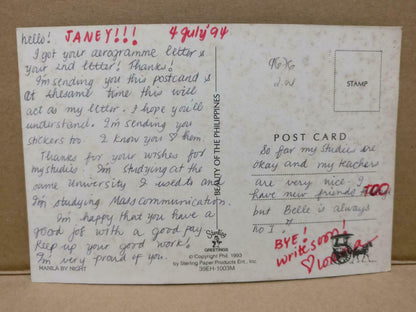 hello! JANEY!!! 4 July '94
I got your aerogramme letter &
your 2nd letter! Thanks!
I'm sending you this postcard &
at the same time this will
act as my letter. I hope you'll
understand. I'm sending you
stickers too I know you ♡ them.
Thanks for your wishes for
my studies. I'm studying at the
same University I used to and
I'm studying Mass communication.
I'm happy that you have a
good job with a good pay.
Keep up your good work!
I'm very proud of you.
MANILA BY NIGHT
BEAUTY OF THE PHILIPPINES
Sterling
GREETINGS
© Copyright Phil. 1993
by Sterling Paper Products Ent., Inc.
39EH-1003M
STAMP
POST CARD
So far my studies are
okay and my teachers
are very nice. I
have new friends TOO
but Belle is always
no 1.
BYE!
write soon!